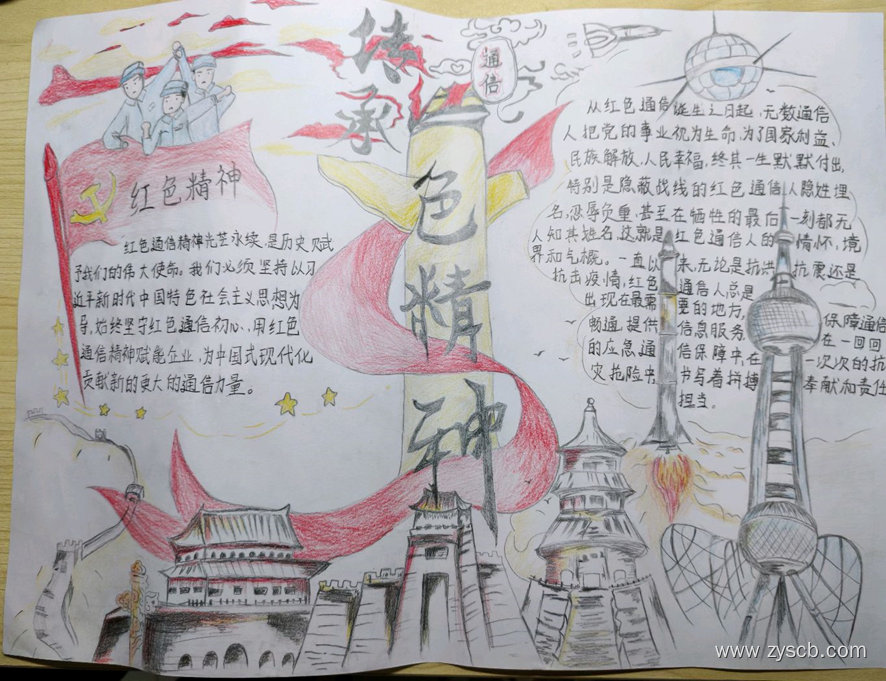 传承
通信
色精神
红色精神
红色通信精神光芒永续,是历史赋
予我们的伟大使命。我们必须坚持以习
近平新时代中国特色社会主义思想为
导,始终坚守红色通信初心,用红色
通信精神赋能企业,为中国式现代化
贡献新的更大的通信力量。
从红色通信诞生之日起,无数通信
人把党的事业视为生命,为了国家利益、
民族解放,人民幸福,终其一生默默付出,
特别是隐蔽战线的红色通信人隐姓埋
名,忍辱负重,甚至在牺牲的最后一刻都无
人知其姓名,这就是红色通信人的情怀,境
界和气概。一直以来,无论是抗洪抗震还是
抗击疫情,红色通信人总是
出现在最需要的地方,保障通信
畅通,提供信息服务,在一回回
的应急通信保障中,在一次次的抗
灾抢险中,书写着拼搏奉献和责任
担当。
www.zyscb.com